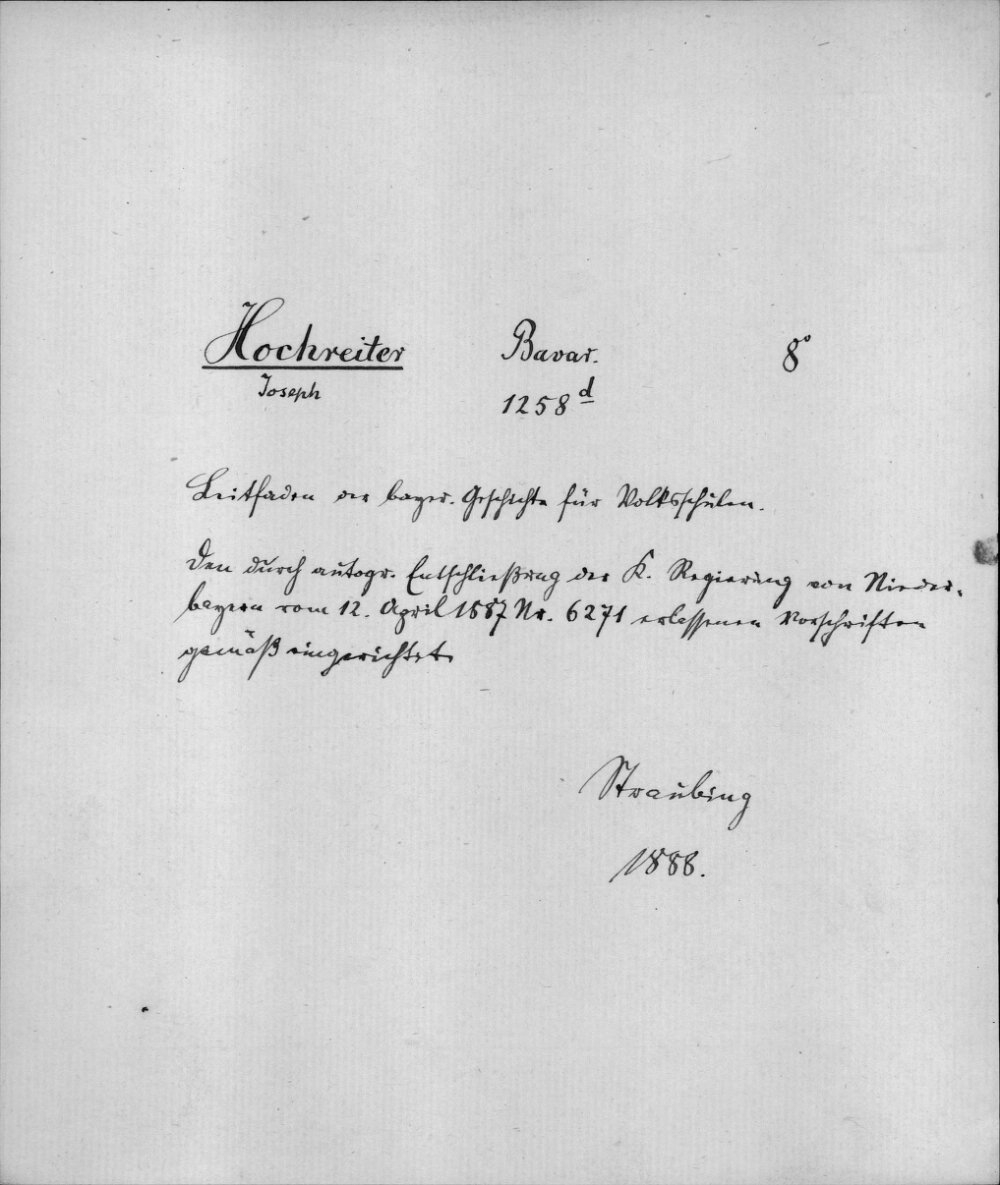 Hochreiter Bavar. 8°
Joseph 1258 d
Leitfaden der bayer. Geschichte für Volksschulen.
Den durch autogr. Entschließung der K. Regierung von Nieder-
bayern vom 12. April 1887 Nr. 6271 erlassenen Vorschriften
gemäß eingerichtet.
Straubing
1888.